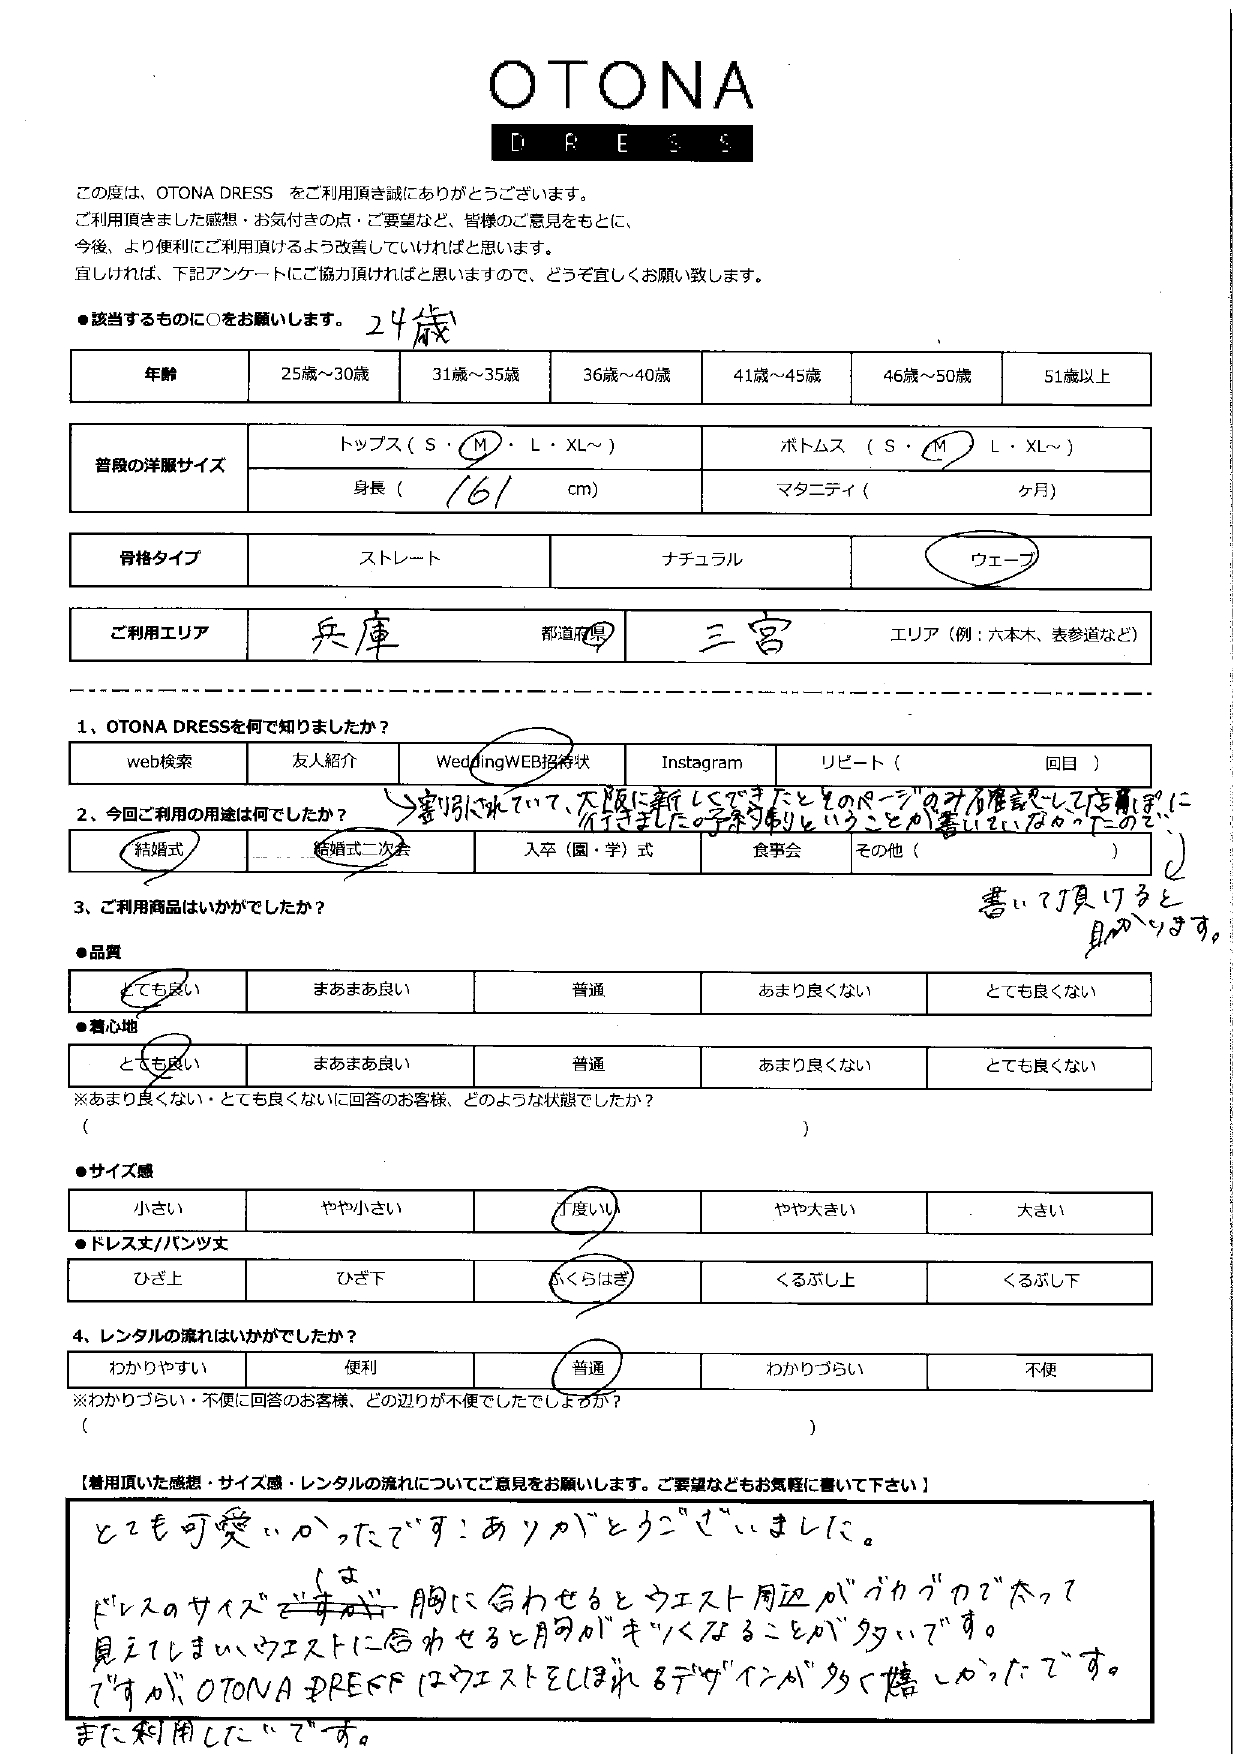 OTONA
DRESS
この度は、OTONA DRESS をご利用頂き誠にありがとうございます。
ご利用頂きました感想・お気付きの点・ご要望など、皆様のご意見をもとに、
今後、より便利にご利用頂けるよう改善していければと思います。
宜しければ、下記アンケートにご協力頂ければと思いますので、どうぞ宜しくお願い致します。
●該当するものに○をお願いします。 24歳
年齢 25歳～30歳 31歳～35歳 36歳～40歳 41歳～45歳 46歳～50歳 51歳以上
普段の洋服サイズ トップス ( S ・ M ・ L ・ XL～ ) ボトムス ( S ・ M L ・ XL～ )
身長 ( 161 cm) マタニティ ( ヶ月)
骨格タイプ ストレート ナチュラル ウェーブ
ご利用エリア 兵庫 都道府県 三宮 エリア（例：六本木、表参道など）
1、OTONA DRESSを何で知りましたか？
web検索 友人紹介 WeddingWEB招待状 Instagram リピート（ 回目 ）
→割引されていて、大阪に新しくできたとそのページのみ確認して店員ぽに
2、今回ご利用の用途は何でしたか？ 行きました。予約制りということが書いていなかったので
結婚式 結婚式二次会 入卒（園・学）式 食事会 その他（ ）
書いて頂けると
助かります。
3、ご利用商品はいかがでしたか？
●品質
とても良い まあまあ良い 普通 あまり良くない とても良くない
●着心地
とても良い まあまあ良い 普通 あまり良くない とても良くない
※あまり良くない・とても良くないに回答のお客様、どのような状態でしたか？
( )
●サイズ感
小さい やや小さい 丁度いい やや大きい 大きい
●ドレス丈/パンツ丈
ひざ上 ひざ下 ふくらはぎ くるぶし上 くるぶし下
4、レンタルの流れはいかがでしたか？
わかりやすい 便利 普通 わかりづらい 不便
※わかりづらい・不便に回答のお客様、どの辺りが不便でしたでしょうか？
( )
【着用頂いた感想・サイズ感・レンタルの流れについてご意見をお願いします。ご要望などもお気軽に書いて下さい】
とても可愛いかったです！ありがとうございました。
ドレスのサイズは胸に合わせるとウエスト周辺がブカブカで太って
見えてしまい、ウエストに合わせると胸がキツくなることが多いです。
ですが、OTONA DRESSはウエストをしぼれるデザインが多く嬉しかったです。
また利用したいです。